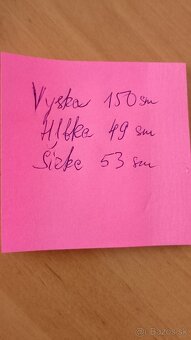 Vyska 150 sm
Hĺbka 49 sm
Šírka 53 sm
© Bazos.sk